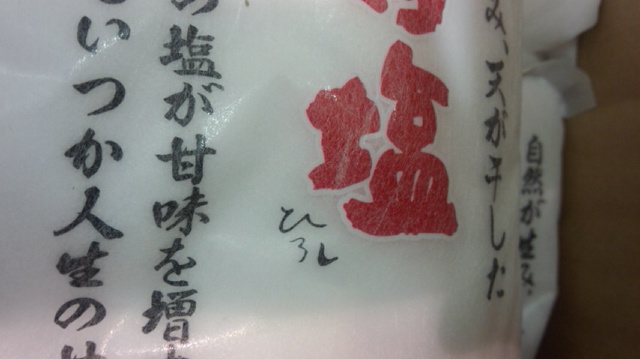 自然が生み、
み、天が干した
塩
ひろし
の塩が甘味を増
いつか人生の